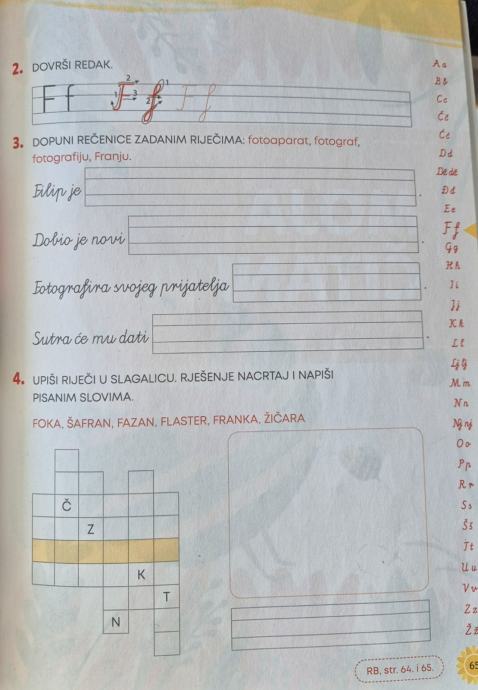 2. DOVRŠI REDAK.
F f F f F f
3. DOPUNI REČENICE ZADANIM RIJEČIMA: fotoaparat, fotograf,
fotografiju, Franju.
Filip je .
Dobio je novi .
Fotografira svojeg prijatelja .
Sutra će mu dati .
4. UPIŠI RIJEČI U SLAGALICU. RJEŠENJE NACRTAJ I NAPIŠI
PISANIM SLOVIMA.
FOKA, ŠAFRAN, FAZAN, FLASTER, FRANKA, ŽIČARA
Č
Z
K
T
N
RB, str. 64. i 65.
65
A a
B b
C c
Č č
Ć ć
D d
Dž dž
Đ đ
E e
F f
G g
H h
I i
J j
K k
L l
Lj lj
M m
N n
Nj nj
O o
P p
R r
S s
Š š
T t
U u
V v
Z z
Ž ž